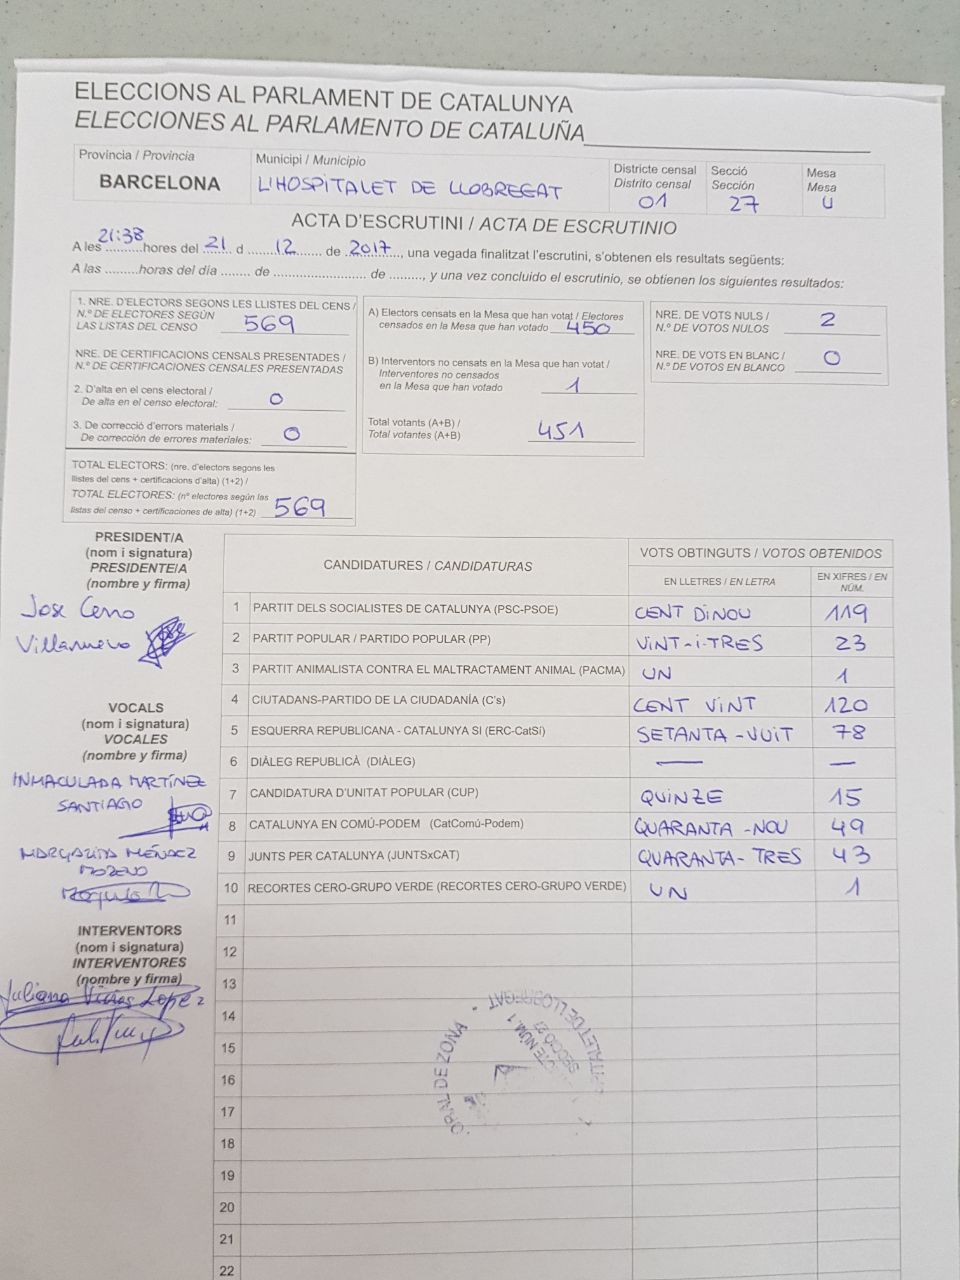 ELECCIONS AL PARLAMENT DE CATALUNYA
ELECCIONES AL PARLAMENTO DE CATALUÑA
Província / Provincia
BARCELONA
Municipi / Municipio
L'HOSPITALET DE LLOBREGAT
Districte censal
Distrito censal
01
Secció
Sección
27
Mesa
Mesa
U
ACTA D'ESCRUTINI / ACTA DE ESCRUTINIO
A les 21:38 hores del 21 d 12 de 2017, una vegada finalitzat l'escrutini, s'obtenen els resultats següents:
A las .........horas del día ........ de ........................ de ........., y una vez concluido el escrutinio, se obtienen los siguientes resultados:
1. NRE. D'ELECTORS SEGONS LES LLISTES DEL CENS /
N.º DE ELECTORES SEGÚN
LAS LISTAS DEL CENSO 569
NRE. DE CERTIFICACIONS CENSALS PRESENTADES /
N.º DE CERTIFICACIONES CENSALES PRESENTADAS
2. D'alta en el cens electoral /
De alta en el censo electoral: 0
3. De correcció d'errors materials /
De corrección de errores materiales: 0
TOTAL ELECTORS: (nre. d'electors segons les
llistes del cens + certificacions d'alta) (1+2) /
TOTAL ELECTORES: (nº electores según las
listas del censo + certificaciones de alta) (1+2) 569
A) Electors censats en la Mesa que han votat / Electores
censados en la Mesa que han votado 450
B) Interventors no censats en la Mesa que han votat /
Interventores no censados
en la Mesa que han votado 1
Total votants (A+B) /
Total votantes (A+B) 451
NRE. DE VOTS NULS /
N.º DE VOTOS NULOS 2
NRE. DE VOTS EN BLANC /
N.º DE VOTOS EN BLANCO 0
PRESIDENT/A
(nom i signatura)
PRESIDENTE/A
(nombre y firma)
Jose Cerro
Villanueva
VOCALS
(nom i signatura)
VOCALES
(nombre y firma)
INMACULADA MARTÍNEZ
SANTIAGO
MARGARITA MÉNDEZ
MORENO
INTERVENTORS
(nom i signatura)
INTERVENTORES
(nombre y firma)
CANDIDATURES / CANDIDATURAS
VOTS OBTINGUTS / VOTOS OBTENIDOS
EN LLETRES / EN LETRA
EN XIFRES / EN NÚM.
1 PARTIT DELS SOCIALISTES DE CATALUNYA (PSC-PSOE) CENT DINOU 119
2 PARTIT POPULAR / PARTIDO POPULAR (PP) VINT-I-TRES 23
3 PARTIT ANIMALISTA CONTRA EL MALTRACTAMENT ANIMAL (PACMA) UN 1
4 CIUTADANS-PARTIDO DE LA CIUDADANÍA (C's) CENT VINT 120
5 ESQUERRA REPUBLICANA - CATALUNYA SI (ERC-CatSí) SETANTA-VUIT 78
6 DIÀLEG REPUBLICÀ (DIÀLEG) — —
7 CANDIDATURA D'UNITAT POPULAR (CUP) QUINZE 15
8 CATALUNYA EN COMÚ-PODEM (CatComú-Podem) QUARANTA-NOU 49
9 JUNTS PER CATALUNYA (JUNTSxCAT) QUARANTA-TRES 43
10 RECORTES CERO-GRUPO VERDE (RECORTES CERO-GRUPO VERDE) UN 1
11
12
13
14
15
16
17
18
19
20
21
22
DE ZONA
DE LLOBREGAT
NÚM. 1
SECCIÓ 27